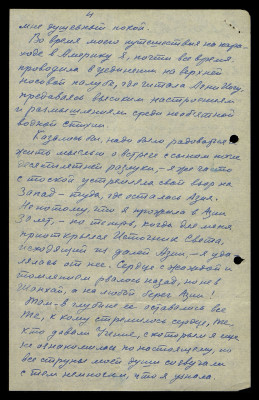 4
мне душевный покой.
Во время моего путешествия на паро-
ходе в Америку я, почти все время
проводила в уединении на верхней
носовой палубе, где читала Агни Йогу,
предаваясь высоким настроениям
и размышлениям среди необъятной
водной стихии.
Казалось бы, надо было радоваться
жить мыслью о встрече с сыном после
десятилетней разлуки, – я же часто
с тоской устремляла свой взор на
Запад – туда, где осталась Азия.
Не потому, что я прожила в Азии
30 лет, – но теперь, когда для меня
приоткрылся Источник Света,
исходящий из далей Азии, – я уда-
лялась от нее. Сердце с жаждой и
томлением рвалось назад, но не в
Шанхай, а на любой берег Азии!
Там – в глубине ее оставались все
Те, к кому стремилось сердце, Те,
кто давали Учение, с которым я еще
не ознакомилась по настоящему, но
все струны моей души созвучали
с тем немногим, что я узнала.